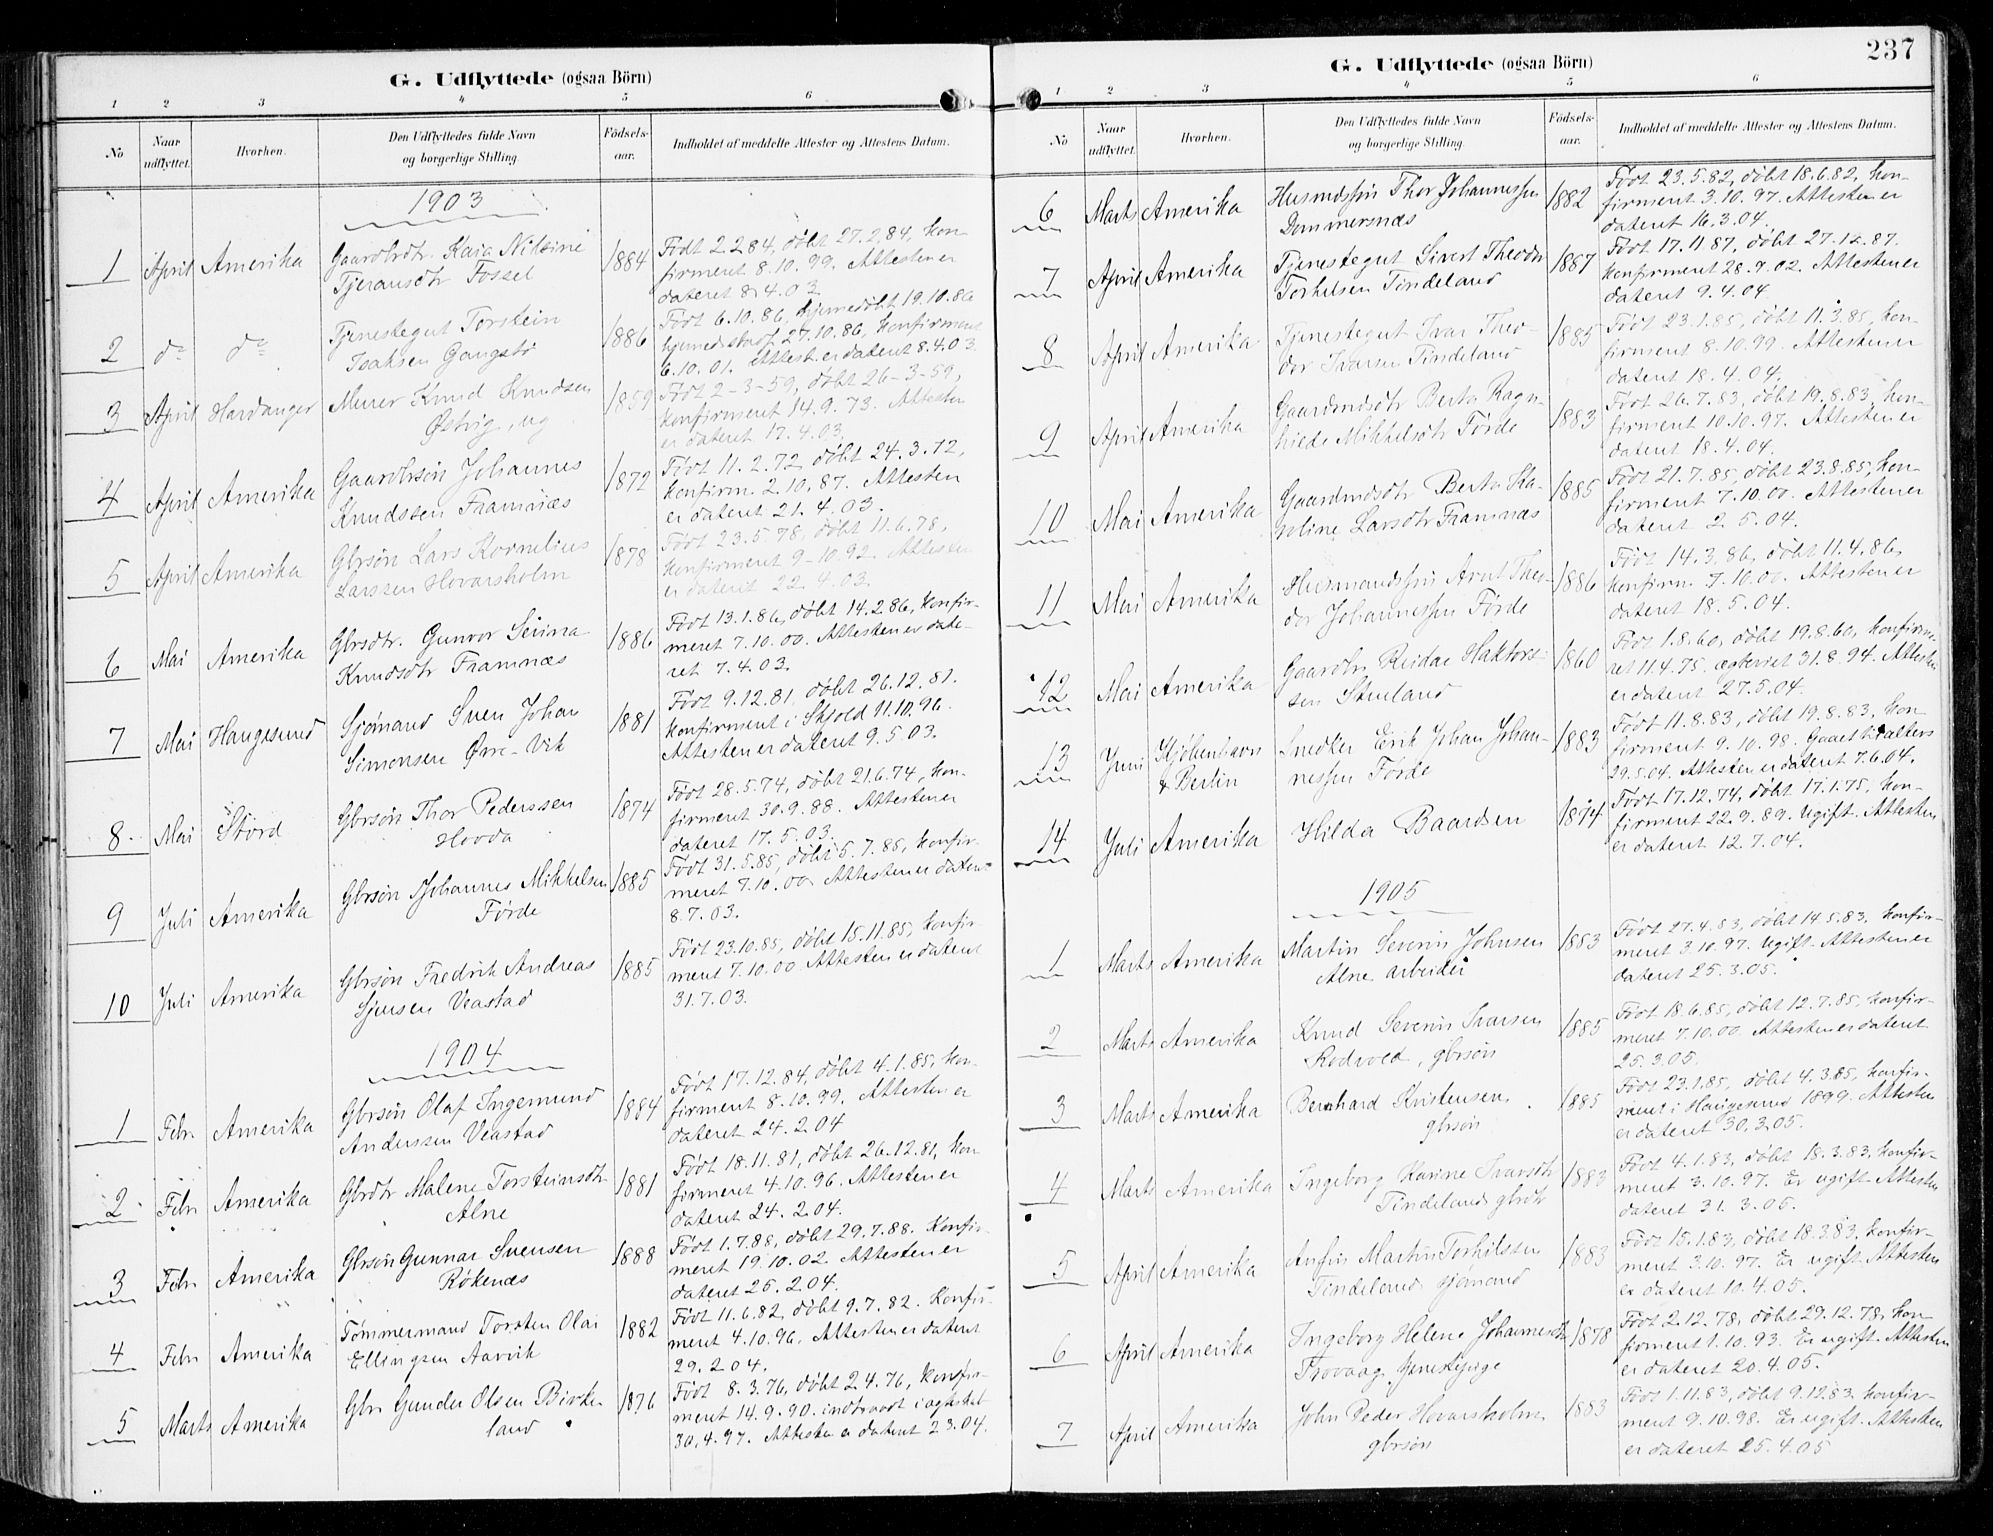 G. Udflyttede (ogsaa Börn)
1 2 3 4 5 6
No
Naar udflyttet.
Hvorhen.
Den Udflyttedes fulde Navn og borgerlige Stilling.
Fødsels-aar.
Indholdet af meddelte Attester og Attestens Datum.
1903
1 April Amerika Gaardbrdtr. Kaia Niksine 1884 Født 2.2.84, døbt 27.2.84, kon-
Tjeransdtr Fossel firmeret 8.10.99. Attesten er
dateret 8.4.03
2 do do Tjenestegut Torstein 1886 Født 6.10.86, hjemmedøbt 19.10.86
Isaksen Gangstø 27.10.86, konfirmeret
6.10.01. Attest. er dateret 8.4.03.
3 April Hardanger Murer Knud Knudsen 1859 Født 2-3-59, døbt 26-3-59,
Østvig, ug konfirmeret 14.9.73. Attesten
er dateret 17.4.03.
4 April Amerika Gaardbrsøn Johannes 1872 Født 11.2.72, døbt 24.3.72,
Knudssen Framnæs konfirm. 2.10.87. Attesten
er dateret 21.4.03.
5 April Amerika Gbrsøn Lars Kornelius 1878 Født 23.5.78, døbt 11.6.78,
Larssen Hovarsholm konfirmeret 9-10.92. Attesten
er dateret 22.4.03.
6 Mai Amerika Gbrsdtr. Gunvor Serina 1886 Født 13.1.86, døbt 14.2.86, konfir-
Knudsdtr Framnæs meret 7.10.00. Attesten er date-
ret 7.4.03.
7 Mai Haugesund Sjømand Sven Johan 1881 Født 9.12.81, døbt 26.12.81.
Simonsen Øvre-Vik konfirmeret i Skjold 11.10.96.
Attesten er dateret 9.5.03.
8 Mai Stord Gbrsøn Thor Pederssen 1874 Født 28.5.74, døbt 21.6.74, kon-
Hovda firmeret 30.9.88. Attesten er
dateret 17.5.03.
9 Juli Amerika Gbrsøn Johannes Mikkelsen 1885 Født 31.5.85, døbt 5.7.85, konfir-
Førde meret 7.10.00 Attesten er dateret
8.7.03.
10 Juli Amerika Gbrsøn Fredrik Andreas 1885 Født 23.10.85, døbt 15.11.85, konfir-
Sjursen Veastad meret 7.10.00 Attesten er dateret
31.7.03.
1904
1 Febr Amerika Gbrsøn Olaf Ingemund 1884 Født 17.12.84, døbt 4.1.85, kon-
Anderssen Veastad firmeret 8.10.99. Attesten er
dateret 24.2.04
2 Febr Amerika Gbrdtr Malene Torsteinsdtr 1881 Født 18.11.81, døbt 26.12.81, kon-
Alne firmeret 4.10.96. Attesten er
dateret 24.2.04.
3 Febr Amerika Gbrsøn Gunnar Svensen 1888 Født 1.7.88, døbt 29.7.88. Konfir-
Røkenæs meret 19.10.02. Attesten er
dateret 26.2.04.
4 Febr Amerika Tømmermand Torsten Olai 1882 Født 11.6.82, døbt 9.7.82. Konfir-
Ellingsen Aarvik meret 4.10.96. Attesten er dateret
29.2.04.
5 Marts Amerika Gbr Gunder Olsen Birke- 1876 Født 8.3.76, døbt 2.4.76, konfir-
land meret 14.9.90. indtraadt i ægteskab
30.4.97. Attesten er dateret 2.3.04.
237
G. Udflyttede (ogsaa Börn)
1 2 3 4 5 6
No
Naar udflyttet.
Hvorhen.
Den Udflyttedes fulde Navn og borgerlige Stilling.
Fødsels-aar.
Indholdet af meddelte Attester og Attestens Datum.
6 Marts Amerika Husmdssøn Thor Johannessen 1882 Født 23.5.82, døbt 18.6.82, kon-
Dommersnæs firmeret 3.10.97. Attesten er
dateret 16.3.04.
7 April Amerika Tjenestegut Sivert Theodor 1887 Født 17.11.87, døbt 27.12.87.
Torkilsen Tindeland konfirmeret 28.9.02. Attesten er
dateret 9.4.04.
8 April Amerika Tjenestegut Ivar Theo- 1885 Født 23.1.85, døbt 11.3.85, kon-
dor Ivarsen Tindeland firmeret 8.10.99. Attesten er
dateret 18.4.04.
9 April Amerika Gaardmdsdtr Berta Ragn- 1883 Født 26.7.83, døbt 19.8.83, kon-
hilde Mikkelsdtr Førde firmeret 10.10.97. Attesten er
dateret 18.4.04.
10 Mai Amerika Gaardmdsdtr Berta Ka- 1885 Født 21.7.85, døbt 23.8.85, kon-
roline Larsdtr Framnæs firmeret 7.10.00. Attesten er
dateret 2.5.04.
11 Mai Amerika Husmandssøn Arnt Theo- 1886 Født 14.3.86, døbt 11.4.86,
dor Johannessen Førde konfirm. 7.10.00. Attesten er
dateret 18.5.04.
12 Mai Amerika Gaardbr Reidar Haktors- 1860 Født 1.8.60, døbt 19.8.60, konfirme-
sen Stueland ret 11.4.75. ægteviet 31.8.94. Attesten
er dateret 27.5.04.
13 Juni Kjøbenhavn Snedker Erik Johan Johan- 1883 Født 11.8.83, døbt 19.8.83, kon-
& Berlin nessen Førde firmeret 9.10.98. Gaaet til alters
29.5.04. Attesten er dateret 7.6.04.
14 Juli Amerika Hilda Baardsen 1874 Født 17.12.74, døbt 17.1.75, kon-
firmeret 22.9.89. Ugift. Attesten
er dateret 12.7.04.
1905
1 Marts Amerika Martin Severin Johnsen 1883 Født 27.4.83, døbt 14.5.83, konfir-
Alne arbeider meret 3.10.97. Ugift. Attesten er
dateret 25.3.05.
2 Marts Amerika Knud Severin Ivarsen 1885 Født 18.6.85, døbt 12.7.85, konfir-
Rødvold, gbrsøn meret 7.10.00. Attesten er dateret
25.3.05.
3 Marts Amerika Bernhard Kristensen 1885 Født 23.1.85, døbt 4.3.85, konfir-
gbrsøn meret i Haugesund 1899. Attesten
er dateret 30.3.05.
4 Marts Amerika Ingeborg Karine Ivarsdtr 1883 Født 4.1.83, døbt 18.3.83, konfir-
Tindeland gbrdtr meret 3.10.97. Er ugift. Attesten
dateret 31.3.05.
5 April Amerika Anfin Martin Torkilssen 1883 Født 15.1.83, døbt 18.3.83, konfir-
Tindeland, sjømand meret 3.10.97. Er ugift. Attesten
er dateret 10.4.05.
6 April Amerika Ingeborg Helene Johannesdtr 1878 Født 2.12.78, døbt 29.12.78, kon-
Trovaag, tjenestepige firmeret 1.10.93. Er ugift. Attesten
er dateret 20.4.05.
7 April Amerika John Peder Hovarsholm 1883 Født 1.11.83, døbt 9.12.83, konfir-
gbrsøn meret 9.10.98. Er ugift. Attesten
er dateret 25.4.05